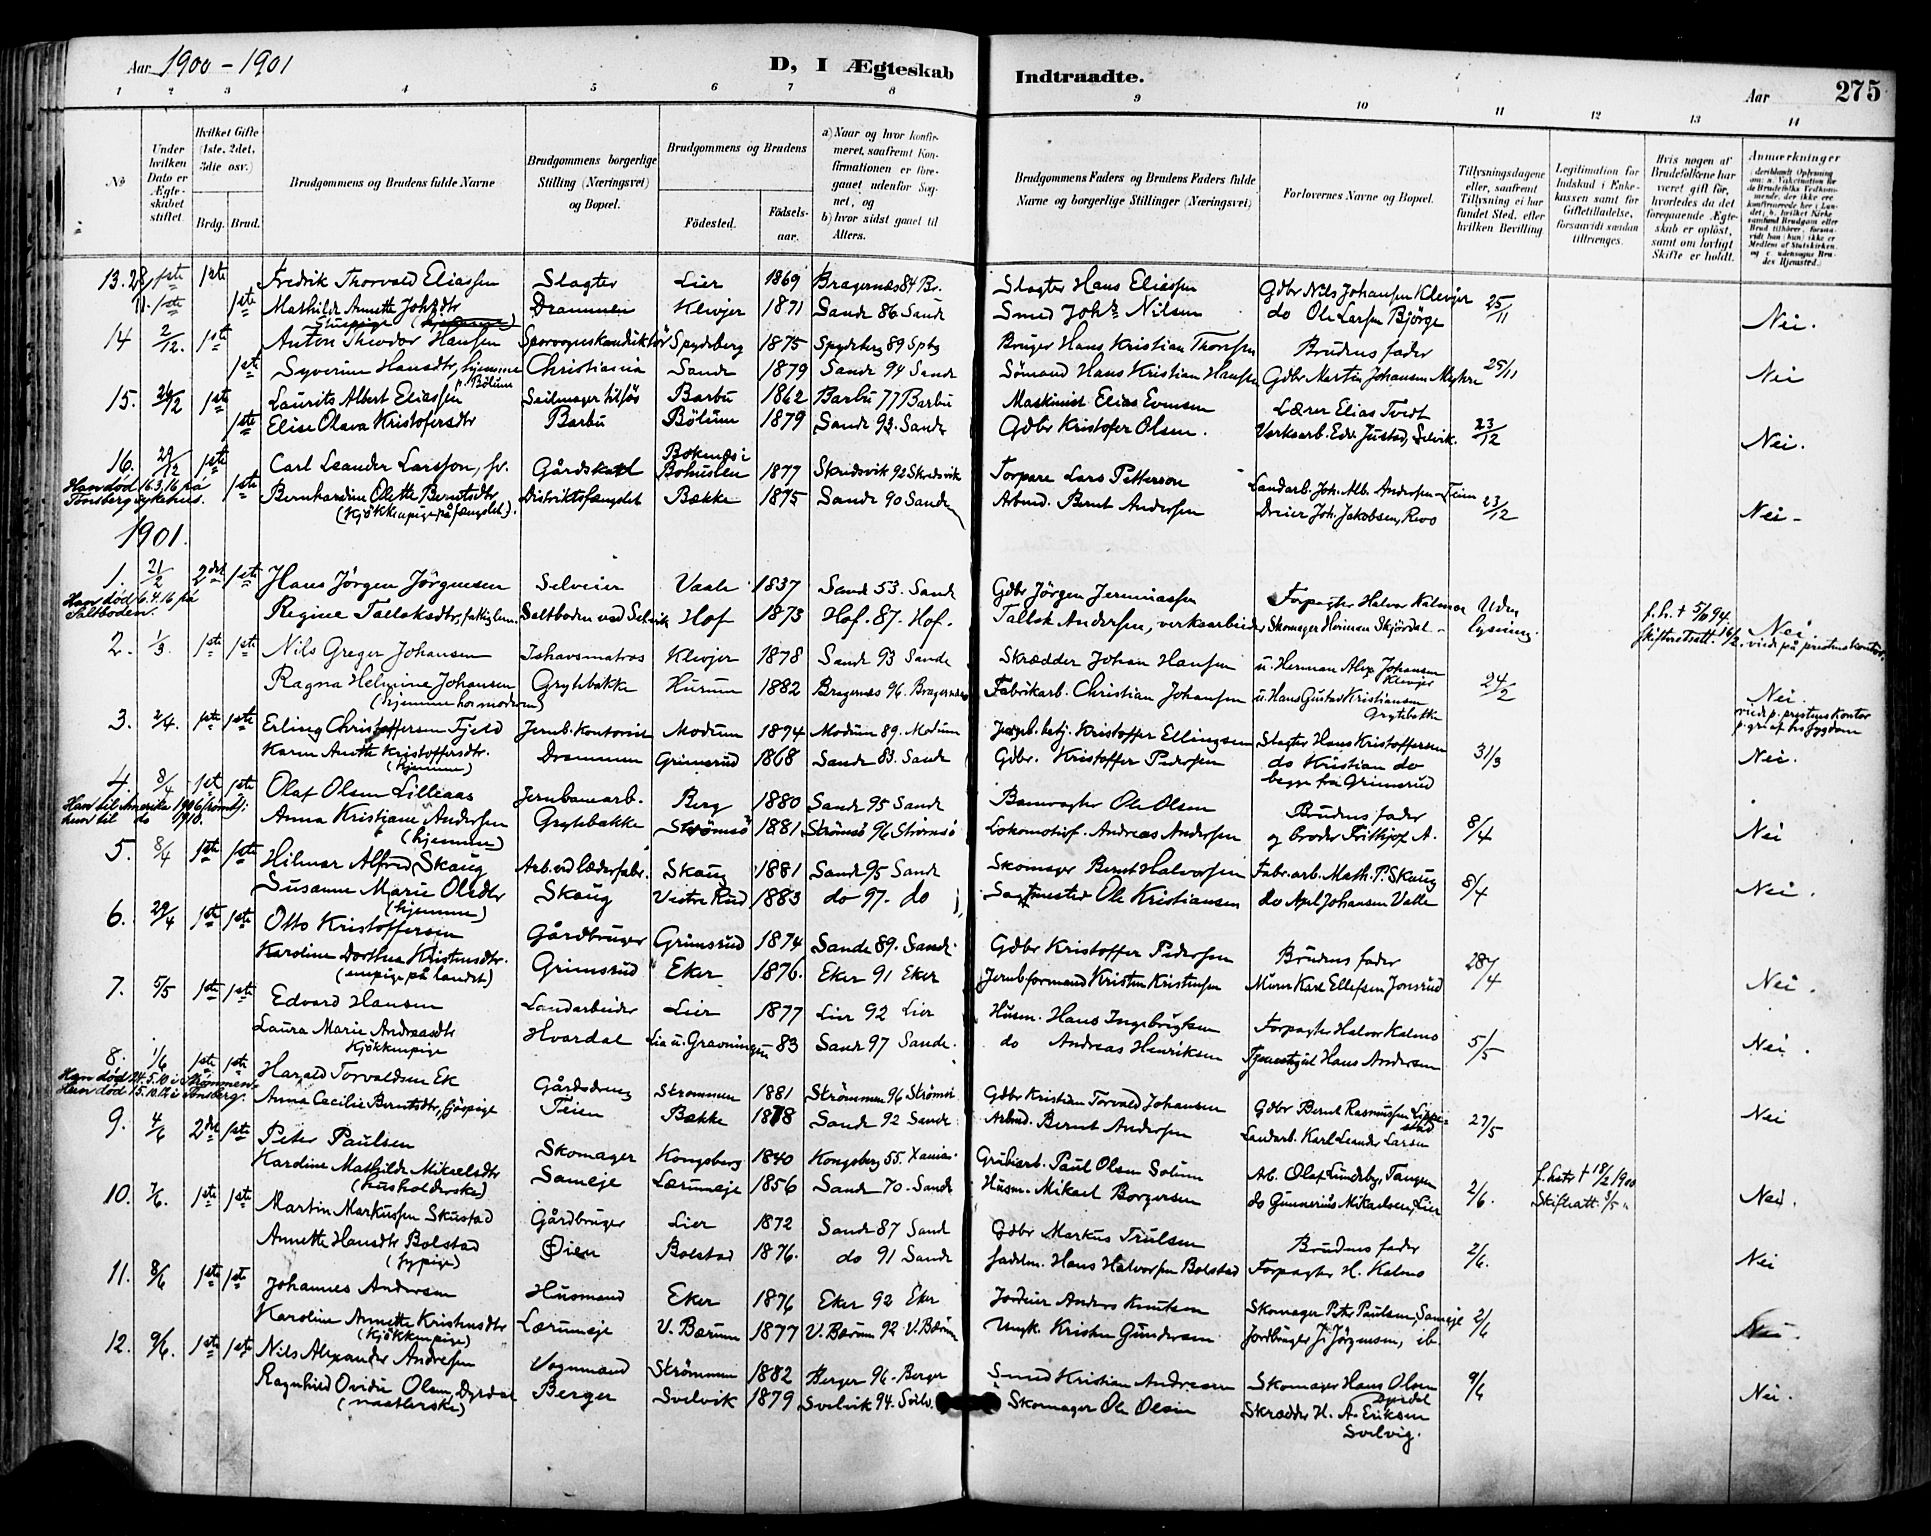 Aar 1900-1901
D, I Ægteskab Indtraadte.
Aar 275
1 2 3 4 5 6 7 8 9 10 11 12 13 14
No
Under hvilken Dato er Ægteskabet stiftet.
Hvilket Gifte (1ste, 2det, 3die osv.)
Brdg. Brud.
Brudgommens og Brudens fulde Navne
Brudgommens borgerlige Stilling (Næringsvei) og Bopæl.
Brudgommens og Brudens
Födested. Födselsaar.
a) Naar og hvor konfirmeret, saafremt Konfirmationen er foregaaet udenfor Sognet, og b) hvor sidst gaaet til Alters.
Brudgommens Faders og Brudens Faders fulde Navne og borgerlige Stillinger (Næringsvei)
Forlovernes Navne og Bopæl.
Tillysningsdagene eller, saafremt Tillysning ei har fundet Sted, efter hvilken Bevilling
Legitimation for Indskud i Enkekassen samt for Giftetilladelse, forsaavidt saadan tiltrænges.
Hvis nogen af Brudefolkene har været gift för, hvorledes da det foregaaende Ægteskab er oplöst, samt om lovligt Skifte er holdt.
Anmærkninger
13. 28/11 1ste Fredrik Thorvald Eliassen Slagter Lier 1869 Bragernæs 84 Br. Slagter Hans Eliassen Gdbr Nils Johansen Klevjer 25/11
1ste Mathilde Annette Johsdtr Drammen Klevjer 1871 Sande 86 Sande Smed Johs Nilsen do Ole Larsen Bjørge Nei.
14 2/12. 1ste Anton Theodor Hansen Sporvognskonduktör Spydeberg 1875 Spydeberg 89 Spbg Bruger Hans Kristian Thorsen Brudens fader
1ste Syverine Hansdtr, hjemme p. Bölum Christiania Sande 1879 Sande 94 Sande Sömand Hans Kristian Hansen Gdbr Martin Johansen Myhre 25/11 Nei
15. 26/12 1ste Laurits Albert Eliassen Seilmager tilsjös Barbu 1862 Barbu 77 Barbu Maskinist Elias Evensen Lærer Elias Tvedt
1ste Elise Olava Kristofersdtr Barbu Bölum 1879 Sande 93. Sande Gdbr Kristofer Olsen. Verksarb. Edv. Justad, Selvik. 23/12 Nei.
16. 29/12 1ste Carl Leander Larsson, sv. Gårdskarl Bokenäs i Bohuslen 1877 Skredsvik 92 Skredsvik Torpare Lars Petterson Landarb. Joh. Alb. Andersen Teien
Han död 16.3.16 på Tönsberg sykehus.
1ste Bernhardine Olette Berntsdtr Distriktsfængslet Bække 1875 Sande 90 Sande Arbmd. Bernt Andersen Dreier Joh. Jakobsen, Revo 23/12 Nei -
(kjökkenpige på fængslet).
1901.
1. 21/2 2det 1ste Hans Jörgen Jörgensen Selveier Vaale 1837 Sand 53. Sand Gdbr Jörgen Jeremiassen Forpagter Halvor Kalmo Uden lysning.
Han död 6.4.16 på Saltboden.
Regine Tallaksdtr, fattiglem. Saltboden ved Selvik Hof 1873 Hof. 87. Hof. Tallak Andersen, verksarbeider Skomager Herman Skjördal f. h. † 5/6 94. Skifteattest. Nei
viede på prestens kontor.
2. 1/3. 1ste 1ste Nils Greger Johansen Ishavsmatros Klevjer 1878 Sande 93 Sande Skrædder Johan Hansen u. Herman Alex Johansen Klevjer
Ragna Helmine Johansen Grytebakke Hurum 1882 Bragernes 96. Bragernæs Fabrikarb. Christian Johansen u. Hans Gustav Kristiansen Grytebakke 24/2 Nei.
(hjemme hos moderen)
viede p. prestens kontor p. gr. af hs sygdom
3. 2/4. 1ste 1ste Erling Christoffersen Fjeld Jernb. Kontorist Modum 1874 Modum 89. Modum Jernb. betj. Kristoffer Ellingsen Slagter Hans Kristoffersen
Karen Anette Kristoffersdtr. (hjemme) Drammen Grimsrud 1868 Sande 83. Sande Gdbr. Kristoffer Pedersen do Kristian do begge fra Grimsrud 31/3 Nei.
4. 8/4 1ste 1ste Olaf Olsen Lilleaas Jernbanearb. Berg 1880 Sande 95 Sande Banevogter Ole Olsen Brudens fader
Han til Amerika 1906 hun til do 1910.
Anna Kristiane Andersen (hjemme) Grytebakke Strømsö 1881 Strömsö 96 Strömsö Lokomotivf. Andreas Andersen og broder Fritkjof A. 8/4 Nei
5. 8/4 1ste 1ste Hilmar Alfred Skaug Arb. ved læderfabr. Skaug 1881 Sande 95 Sande Skomager Bernt Halvorsen Fabr. arb. Math. P. Skaug
Susanne Marie Olsdtr (hjemme) Skaug Vestre Rud 1883 do 97. do Sagmester Ole Kristiansen do Axel Johansen Valle 8/4 Nei.
6. 29/4 1ste 1ste Otto Kristoffersen Gårdbruger Grimsrud 1874 Sande 89. Sande. Gdbr Kristoffer Pedersen Brudens fader
Karoline Dorthea Kristensdtr. Grimsrud Eker 1876. Eker 91 Eker Jernb. formand Kristen Kristensen Murer Karl Ellefsen Jonsrud 28/4 Nei.
7. 5/5 1ste 1ste Edvard Hansen Landarbeider Lier 1877 Lier 92 Lier Husm. Hans Ingebrigtsen Forpagter Halvor Kalmo
Laura Marie Andreasdtr Kjökkenpige Hvardal Lia u. Gravningen 83 Sande 97 Sande. do Andreas Henriksen Tjenestgut Hans Andersen 5/5 Nei.
8. 1/6 1ste 1ste Harald Torvaldsen Ek Gårdsdreng Strømmen 1881 Strömmen 96 Strömm. Gdbr Kristian Torvald Johansen Gdbr Bernt Rasmussen Lippestad
Anna Cecilie Berntsdtr, Teien Bække 1878 Sande 92 Sande Arbmd. Bernt Andersen Landarb. Karl Leander Larsen 27/5 Nei
9. 4/6 2det 1ste Peter Paulsen Skomager Kongsberg 1840 Kongsberg 55. Xania. Grubearb. Paul Olsen Solum Arb. Olaf Lundeby, Tangen f. hstr † 18/2 1900
Karoline Mathilde Mikaelsdtr (husholderske) Sameje Lærumeje 1856 Sande 70. Sande Husm. Mikael Borgersen do Gunnerius Mikaelsen, Lier 2/6. Skifteatt. 3/5 Nei.
10. 7/6. 1ste 1ste Martin Markussen Skustad Gårdbruger Lier 1872 Sande 87 Sand Gdbr Markus Trulsen Brudens fader
Annette Hansdtr Bolstad (sypige) Øien Bolstad 1876. do 91 Sande Hans Halvorsen Bolstad Forpagter H. Kalmo 2/6. Nei
11. 8/6 1ste 1ste Johannes Andersen Husmand Eker 1876 Eker 92 Eker Jordeier Anders Knutsen Skomager Peter Paulsen, Sameje
Karoline Annette Kristensdtr (kjökkenpige) Lærumeje V. Bærum 1877 V. Bærum 92. V. Bærum Kristen Gundersen Jordbruger J. Jörgensen, ib. 2/6 Nei.
12. 9/6. 1ste 1ste Nils Alexander Andresen Vognmand Strömmen 1882 Berger 96. Berger Smed Kristian Andresen Skomager Hans Olsen Dyrdal
Ragnhild Ovidie Olsen, Dyrdal Berger Svelvik 1879 Svelvik 94. Svelv. Skomager Ole Olsen Skrædder H. A. Eriksen Svelvig. 9/6 Nei.